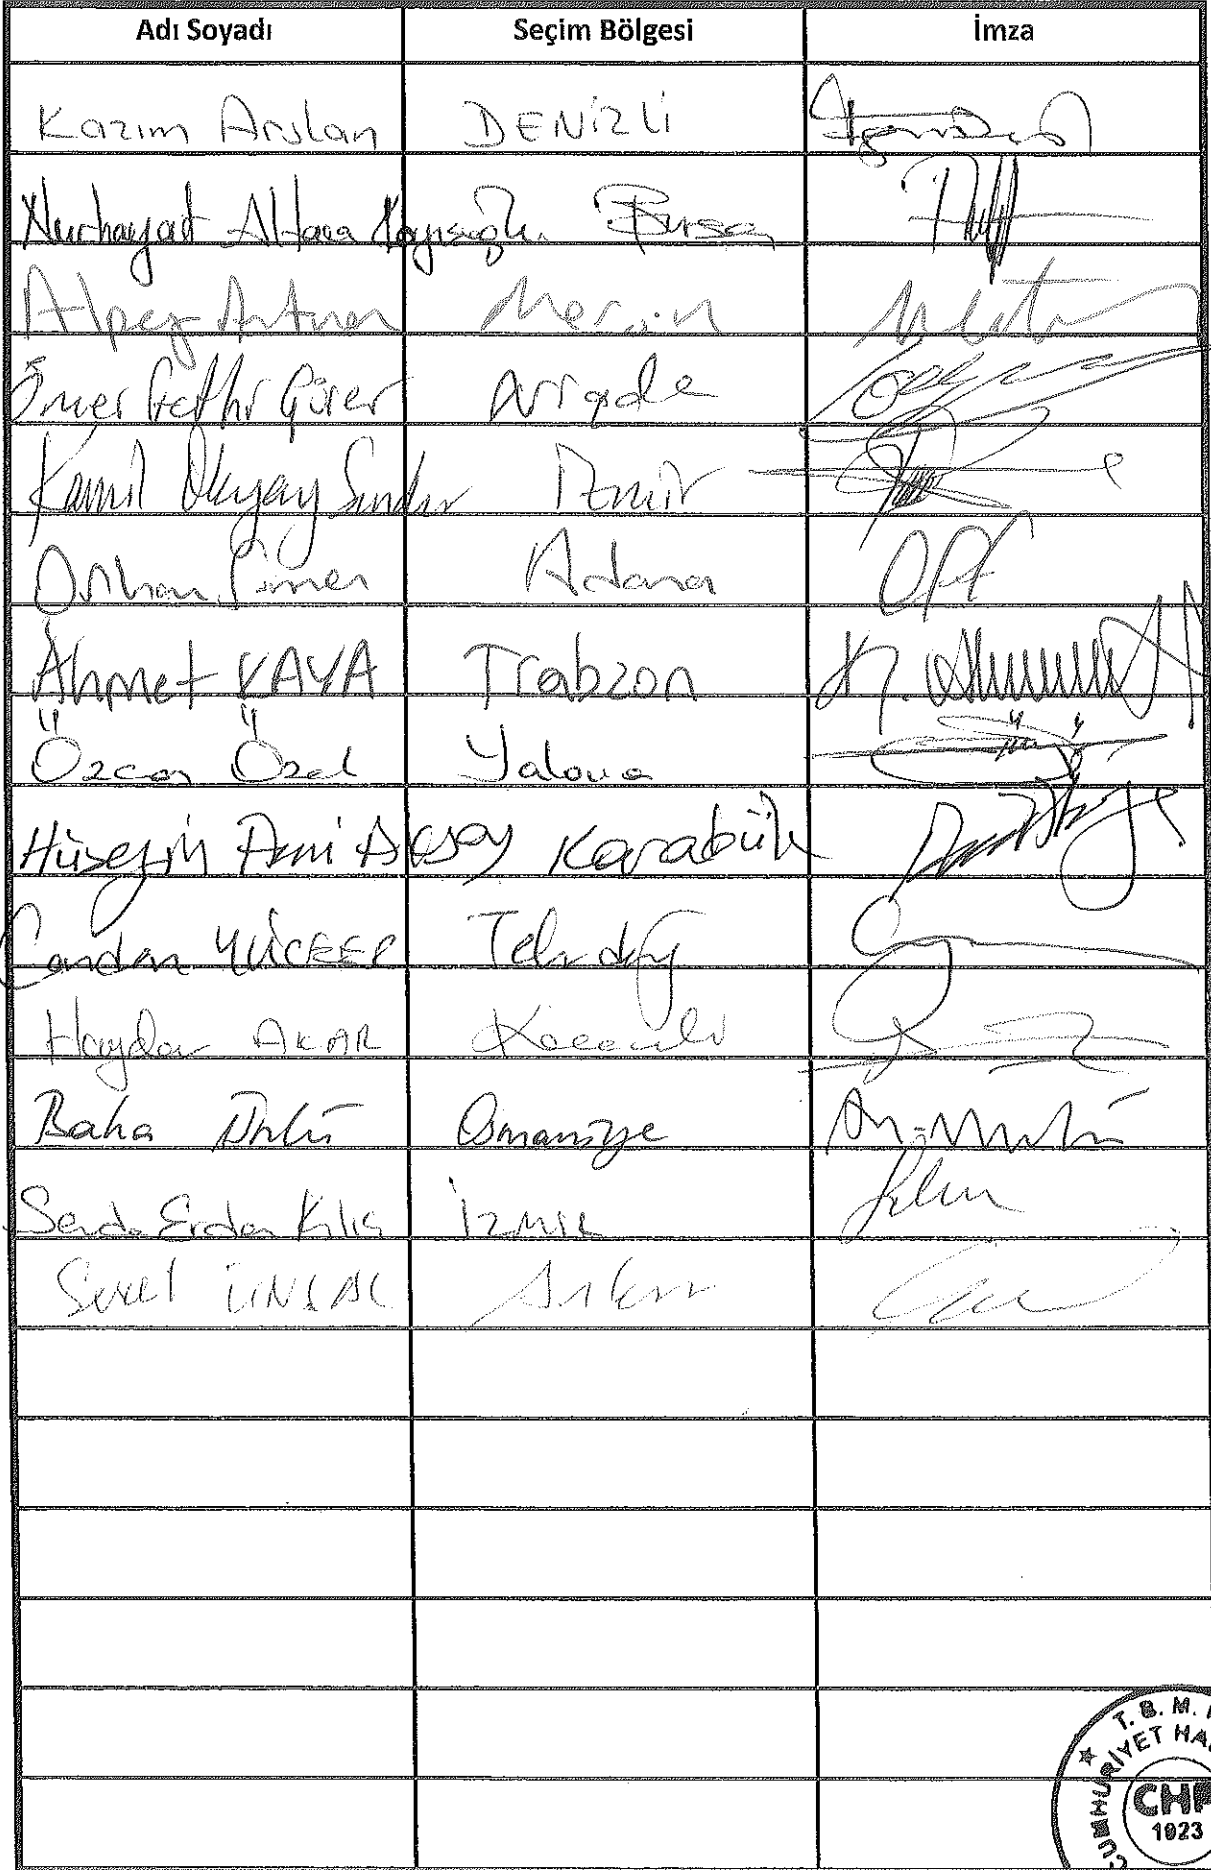 Adı Soyadı Seçim Bölgesi İmza
Kazım Arslan DENİZLİ
Nurhayat Altaca Kayışoğlu Bursa
Alpay Antmen Mersin
Ömer Fethi Gürer Niğde
Kamil Okyay Sındır İzmir
Orhan Sümer Adana
Ahmet KAYA Trabzon
Özcan Özel Yalova
Hüseyin Avni Aksoy Karabük
Candan YÜCEER Tekirdağ
Haydar AKAR Kocaeli
Baha Ünlü Osmaniye
Sevda Erdan Kılıç İzmir
Servet ÜNSAL Ankara
T. B. M. M
CUMHURİYET HAL
CHP
1923